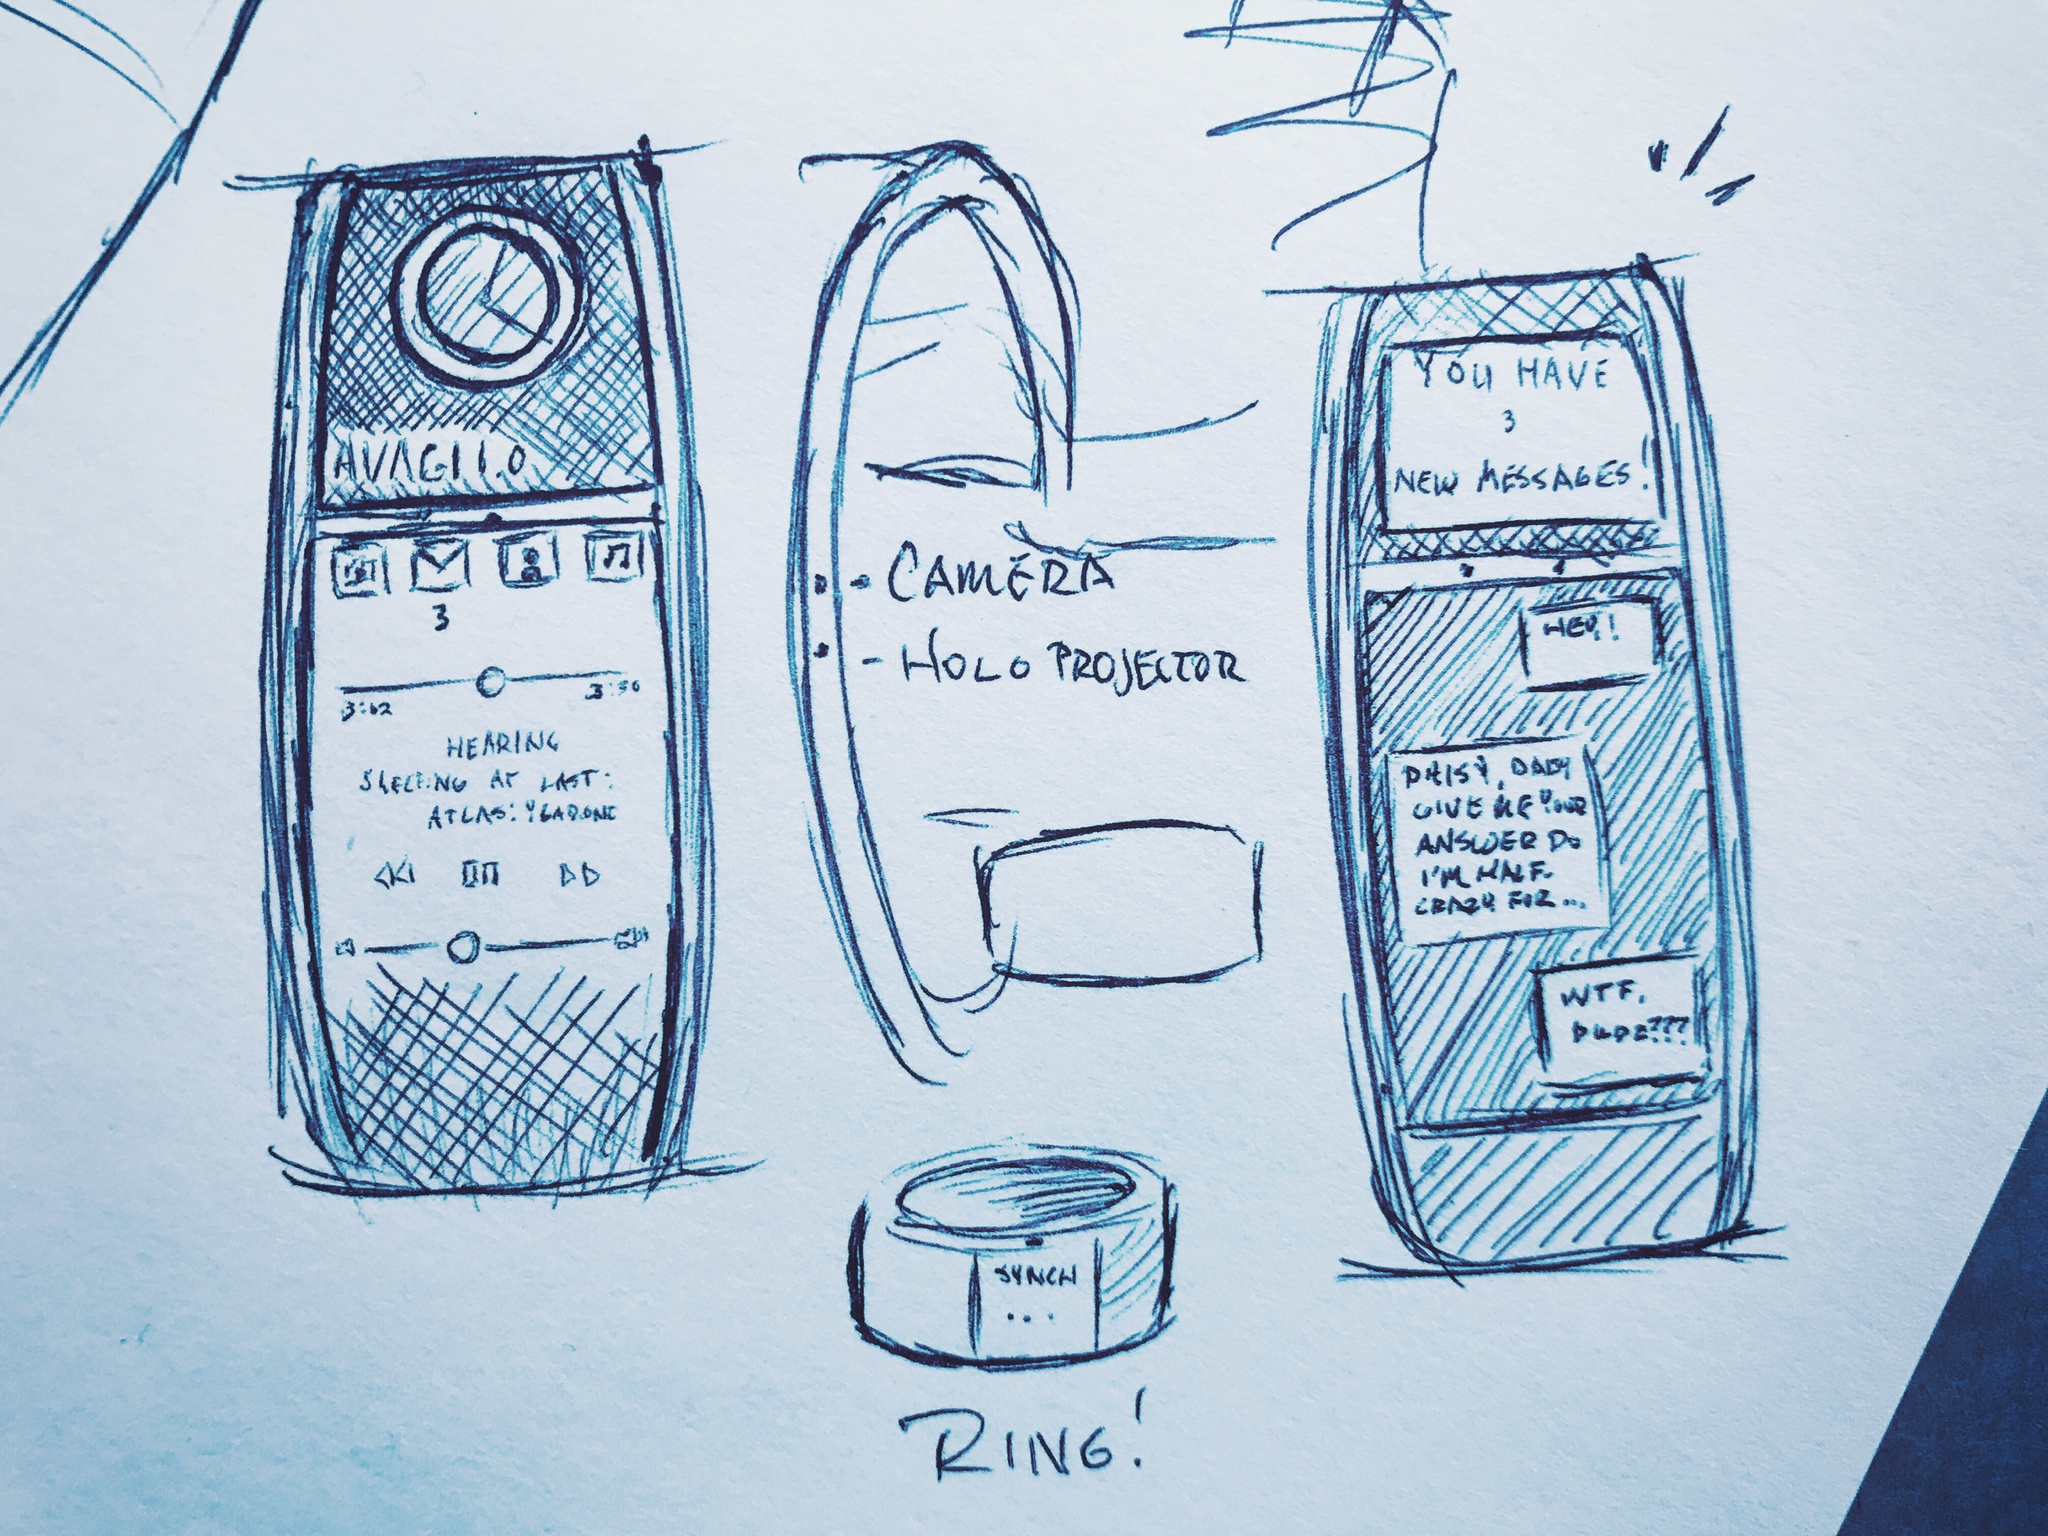 3
3:02
3:30
HEARING
SLEEPING AT LAST:
ATLAS:
CAMERA
- HOLO PROJECTOR
SYNCH
...
RING!
YOU HAVE
3
NEW MESSAGES!
HEY!
DAISY, DAISY
GIVE ME YOUR
ANSWER DO
I'M HALF
CRAZY FOR...
WTF,
DUDE???